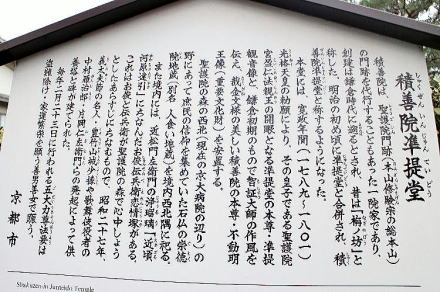 積善院準提堂
しゃくぜんいんじゅんていどう
積善院は、聖護院門跡(本山修験宗の総本山)
の門跡を代行することもあった一院家であり、
創建は鎌倉時代に遡るとされ、昔は「梅ノ坊」と
称した。明治の初め頃に準提堂と合併され、積
善院準提堂と称するようになった。
本堂には、寛政年間(一七八九~一八〇一)
光格天皇の勅願により、その皇子である聖護院
宮盈仁法親王の開眼となる準提堂の本尊・準提
観音像と、鎌倉初期のもので智証大師の作風を
伝え、截金文様の美しい積善院の本尊・不動明
王像(重要文化財)を安置する。
聖護院の森の西北(現在の京大病院の辺り)の
野にあって庶民の信仰を集めていた石仏の崇徳
院地蔵(別名 人喰い地蔵)を境内西北隅に祀る。
また境内には、近松門左衛門の浄瑠璃「近頃
河原達引」にちなんだお俊伝兵衛恋情塚がある。
これはお俊と伝兵衛が聖護院の森で心中しよう
としたあらすじにちなむもので、昭和二十七年、
義太夫節の名人・豊竹山城少掾や歌舞伎役者の
中村雁治郎・片岡仁左衛門らの発起によって供
養塔と碑が建てられた。
毎年二月二十三日に行われる五大力尊法要は
盗難除け・家運繁栄を願う善男善女で賑う。
京都市
Shakuzen-in Junteidō Temple